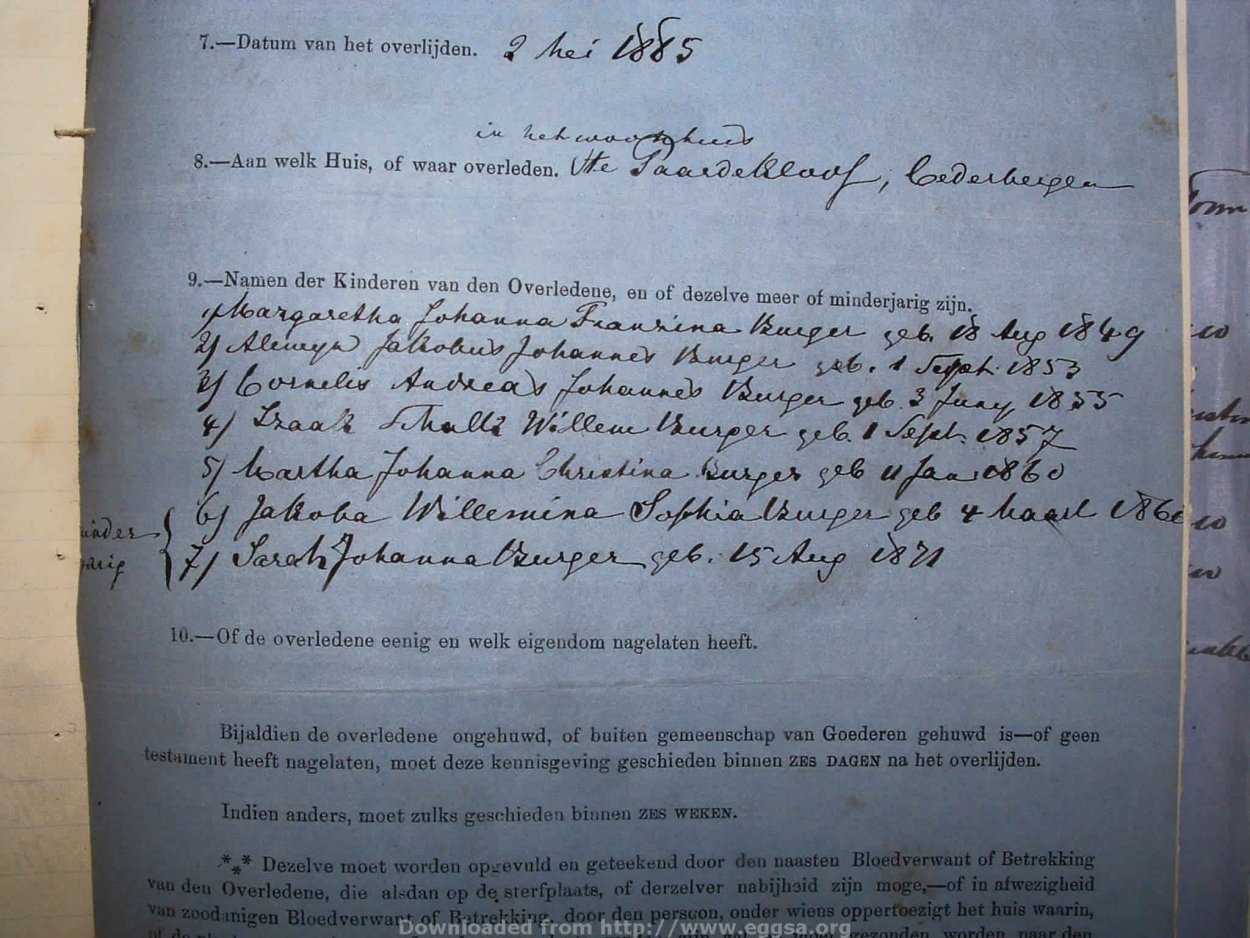 7.—Datum van het overlijden. 2 Mei 1885
in het woonhuis
8.—Aan welk Huis, of waar overleden. te Paardekloof, Cederbergen
9.—Namen der Kinderen van den Overledene, en of dezelve meer of minderjarig zijn.
1) Margaretha Johanna Franzina Burger geb. 18 Aug 1849
2) Alewyn Jakobus Johannes Burger geb. 1 Sept. 1853
3) Cornelis Andreas Johannes Burger geb. 3 Juny 1855
4) Izaak Scholtz Willem Burger geb. 1 Sept. 1857
5) Martha Johanna Christina Burger geb 11 Jan 1860
6) Jakoba Willemina Sophia Burger geb 4 Maart
minder
jarig
7) Sarah Johanna Burger geb. 15 Aug 1871
10.—Of de overledene eenig en welk eigendom nagelaten heeft.
Bijaldien de overledene ongehuwd, of buiten gemeenschap van Goederen gehuwd is—of geen
testament heeft nagelaten, moet deze kennisgeving geschieden binnen ZES DAGEN na het overlijden.
Indien anders, moet zulks geschieden binnen ZES WEKEN.
*** Dezelve moet worden opgevuld en geteekend door den naasten Bloedverwant of Betrekking
van den Overledene, die alsdan op de sterfplaats, of derzelver nabijheid zijn moge,—of in afwezigheid
van zoodanigen Bloedverwant of Betrekking, door den persoon, onder wiens oppertoezigt het huis waarin,
gezonden worden naar den
Downloaded from http://www.eggsa.org